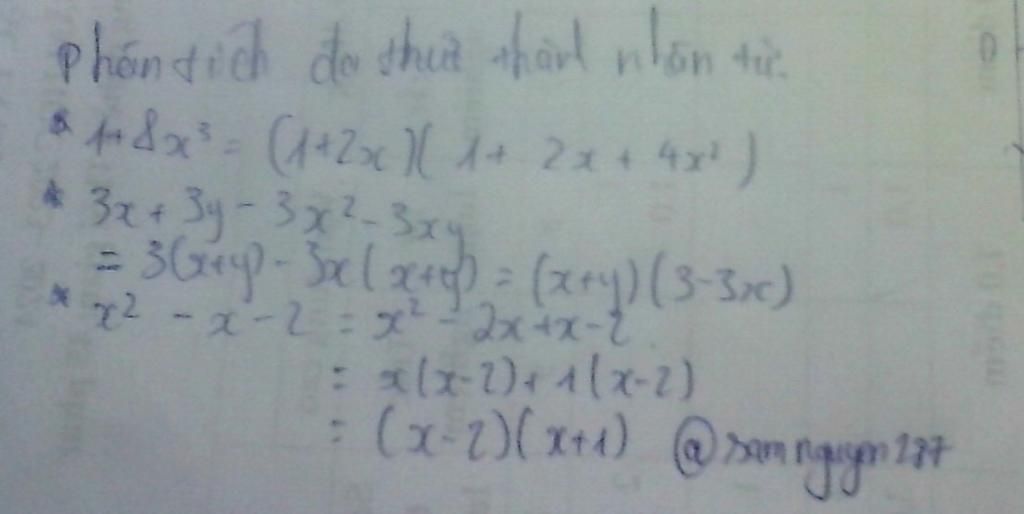 Phân tích đa thức thành nhân tử.
* 1+8x³ = (1+2x)(1+ 2x + 4x²)
* 3x + 3y - 3x² - 3xy
= 3(x+y) - 3x(x+y) = (x+y)(3-3x)
* x² - x - 2 = x² - 2x + x - 2
= x(x-2) + 1(x-2)
= (x-2)(x+1) @samnguyen287